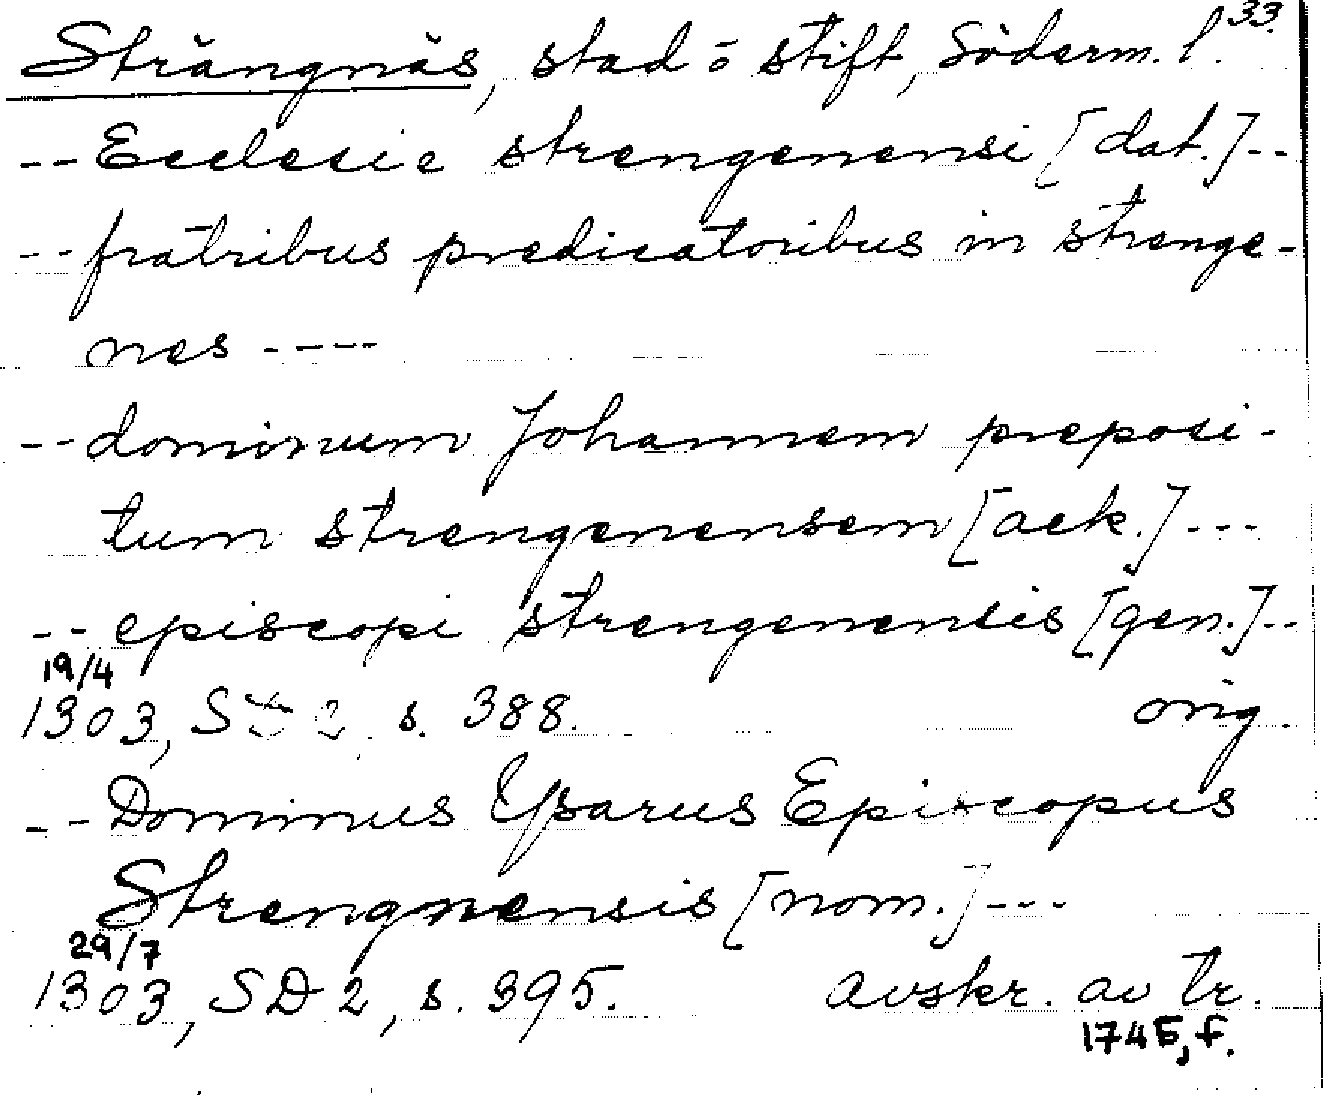 33.
Strängnäs, stad o stift, Söderm. l.
-- Ecclesie strengenensi [dat.] --
-- fratribus predicatoribus in strenge-
nes ----
-- dominum Johannem preposi-
tum strengenensem [ack.] ---
-- episcopi strengenensis [gen.] --
19/4
1303, SD 2 s. 388. orig.
-- Dominus Ysarus Episcopus
Strengnensis [nom.] ---
29/7
1303, SD 2, s. 395. avskr. av tr.
1745, f.